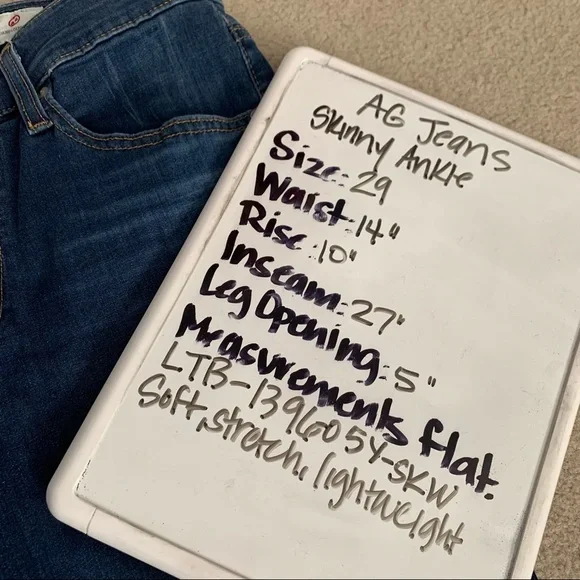 AG Jeans
Skinny Ankle
Size: 29
Waist: 14"
Rise: 10"
Inseam: 27"
Leg Opening: 5"
Measurements flat.
LTB-1396054-SKW
Soft, stretch, lightweight